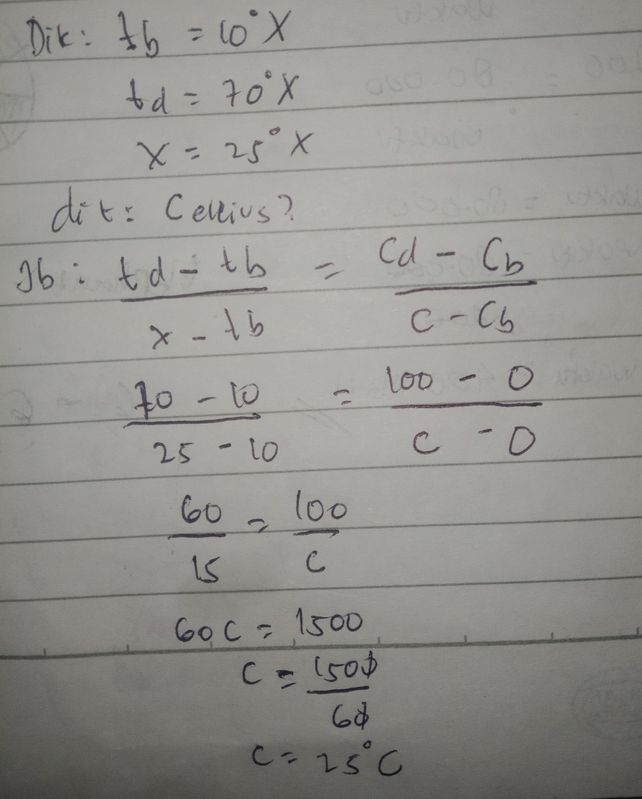 Dik: tb = 10°X
td = 70°X
x = 25°X
dit: Celcius?
Jb: td - tb / x - tb = Cd - Cb / C - Cb
70 - 10 / 25 - 10 = 100 - 0 / C - 0
60 / 15 = 100 / C
60C = 1500
C = 1500 / 60
C = 25°C